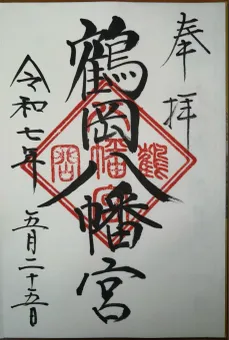 奉拝
鶴岡八幡宮
鶴岡八幡宮
令和七年
五月二十五日